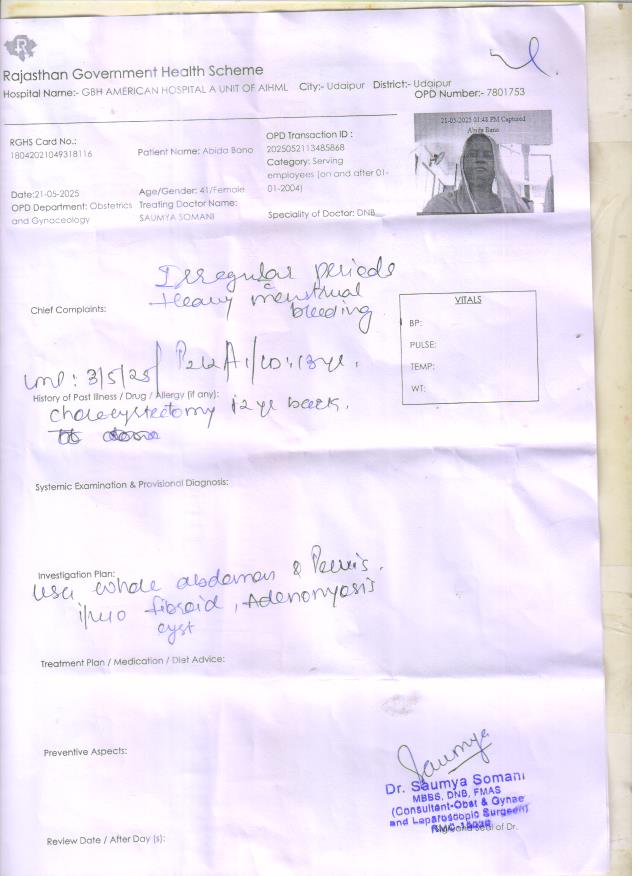 R
Rajasthan Government Health Scheme
Hospital Name:- GBH AMERICAN HOSPITAL A UNIT OF AIHML City:- Udaipur District:- Udaipur
OPD Number:- 7801753
21-05-2025 01:48 PM Captured
Abida Bano
RGHS Card No.:
18042021049318116
Patient Name: Abida Bano
OPD Transaction ID :
2025052113485868
Category: Serving
employees (on and after 01-
01-2004)
Date:21-05-2025
OPD Department: Obstetrics
and Gynaceology
Age/Gender: 41/Female
Treating Doctor Name:
SAUMYA SOMANI
Speciality of Doctor: DNB
Irregular periods
Heavy menstrual
bleeding
Chief Complaints:
VITALS
BP:
PULSE:
TEMP:
WT:
LMP: 3/5/25
History of Past Illness / Drug / Allergy (if any):
cholecystectomy 12 yr back.
Systemic Examination & Provisional Diagnosis:
Investigation Plan:
USG whole abdomen & Pelvis.
fibroid, Adenomyosis
cyst
Treatment Plan / Medication / Diet Advice:
Preventive Aspects:
Saumya
Dr. Saumya Somani
MBBS, DNB, FMAS
(Consultant-Obst & Gynae
and Laparoscopic Surgeon)
Seal of Dr.
Review Date / After Day (s):